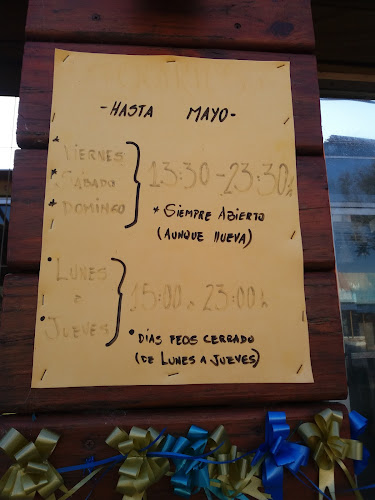 -HASTA MAYO-
* VIERNES
* SÁBADO
* DOMINGO
13:30-23:30h
* SIEMPRE ABIERTO
(AUNQUE LLUEVA)
• LUNES
a
• JUEVES
15:00 a 23:00h
• DÍAS FEOS CERRADO
(DE LUNES A JUEVES)